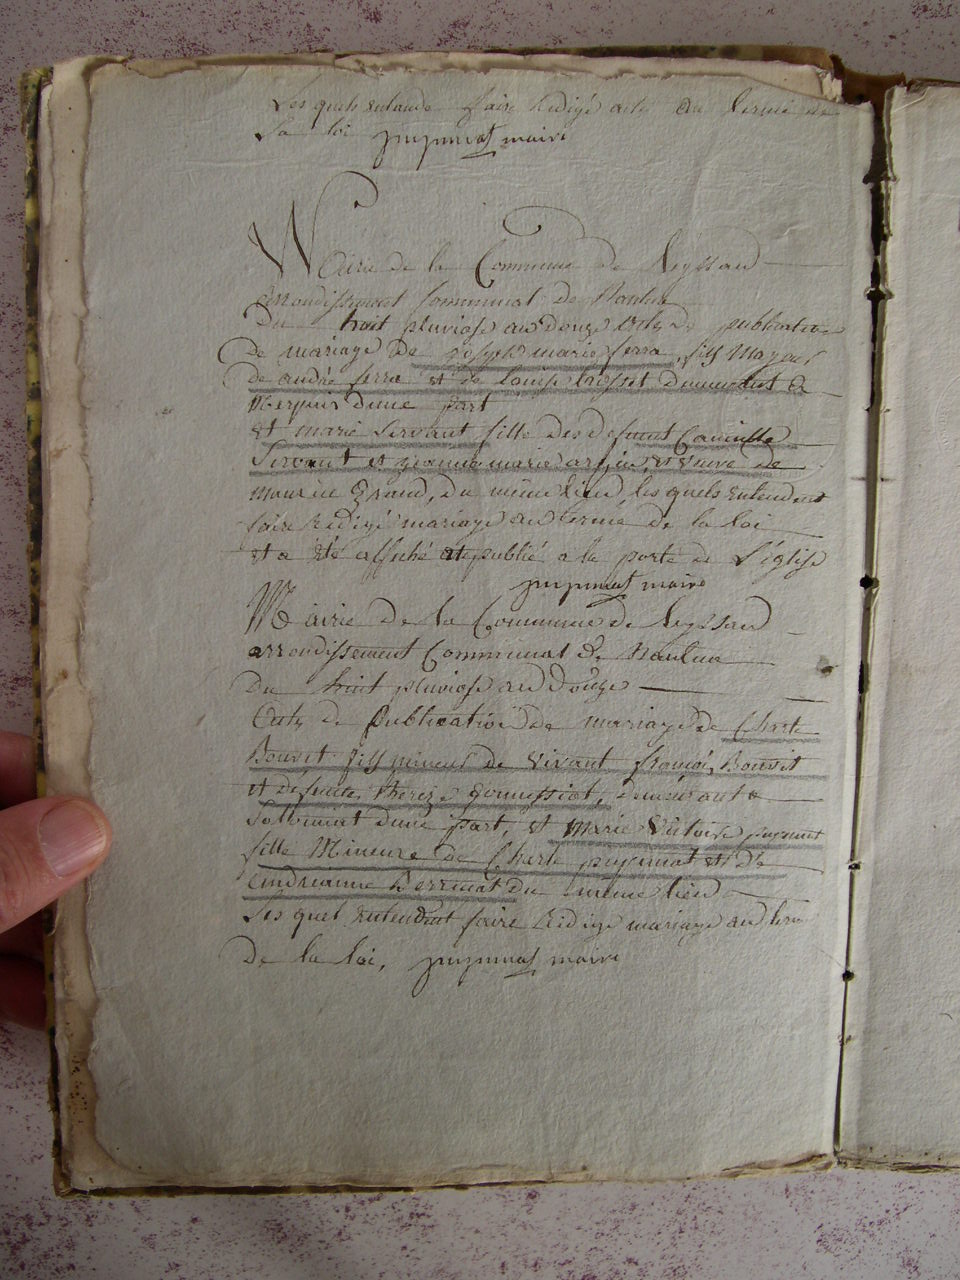 Les quels entande faire redigé acte au termé de
la loi puyminat maire
Mairie de la Commune de Neyssau
arrondissement Communal de Nantua
Du huit pluviose an Douze acte de publication
de mariage de joseph marie ferra, fils Mageur
de andré ferra et de louise brosset Demeurant a
d'une part
et marie Servant fille des defunt Camille
Servant et jeanne marie et veuve de
maurice, du même lieu, les quels entendent
faire redigé mariage au termé de la loi
et a été affiché et publié a la porte de L'église
puyminat maire
Mairie de la Commune de Neyssau
arrondissement Communal de Nantua
Du huit pluviose an Douze
acte de publication de mariage de Charle
Bouvet fils mineur de vivant françoi Bouvet
et défunte thereze, demeurant a
d'une part, et Marie Victoire puyminat
fille Mineure de Charle puyminat et de
andrianne du même lieu
Les quel entendent faire redigé mariage au term
de la loi, puyminat maire